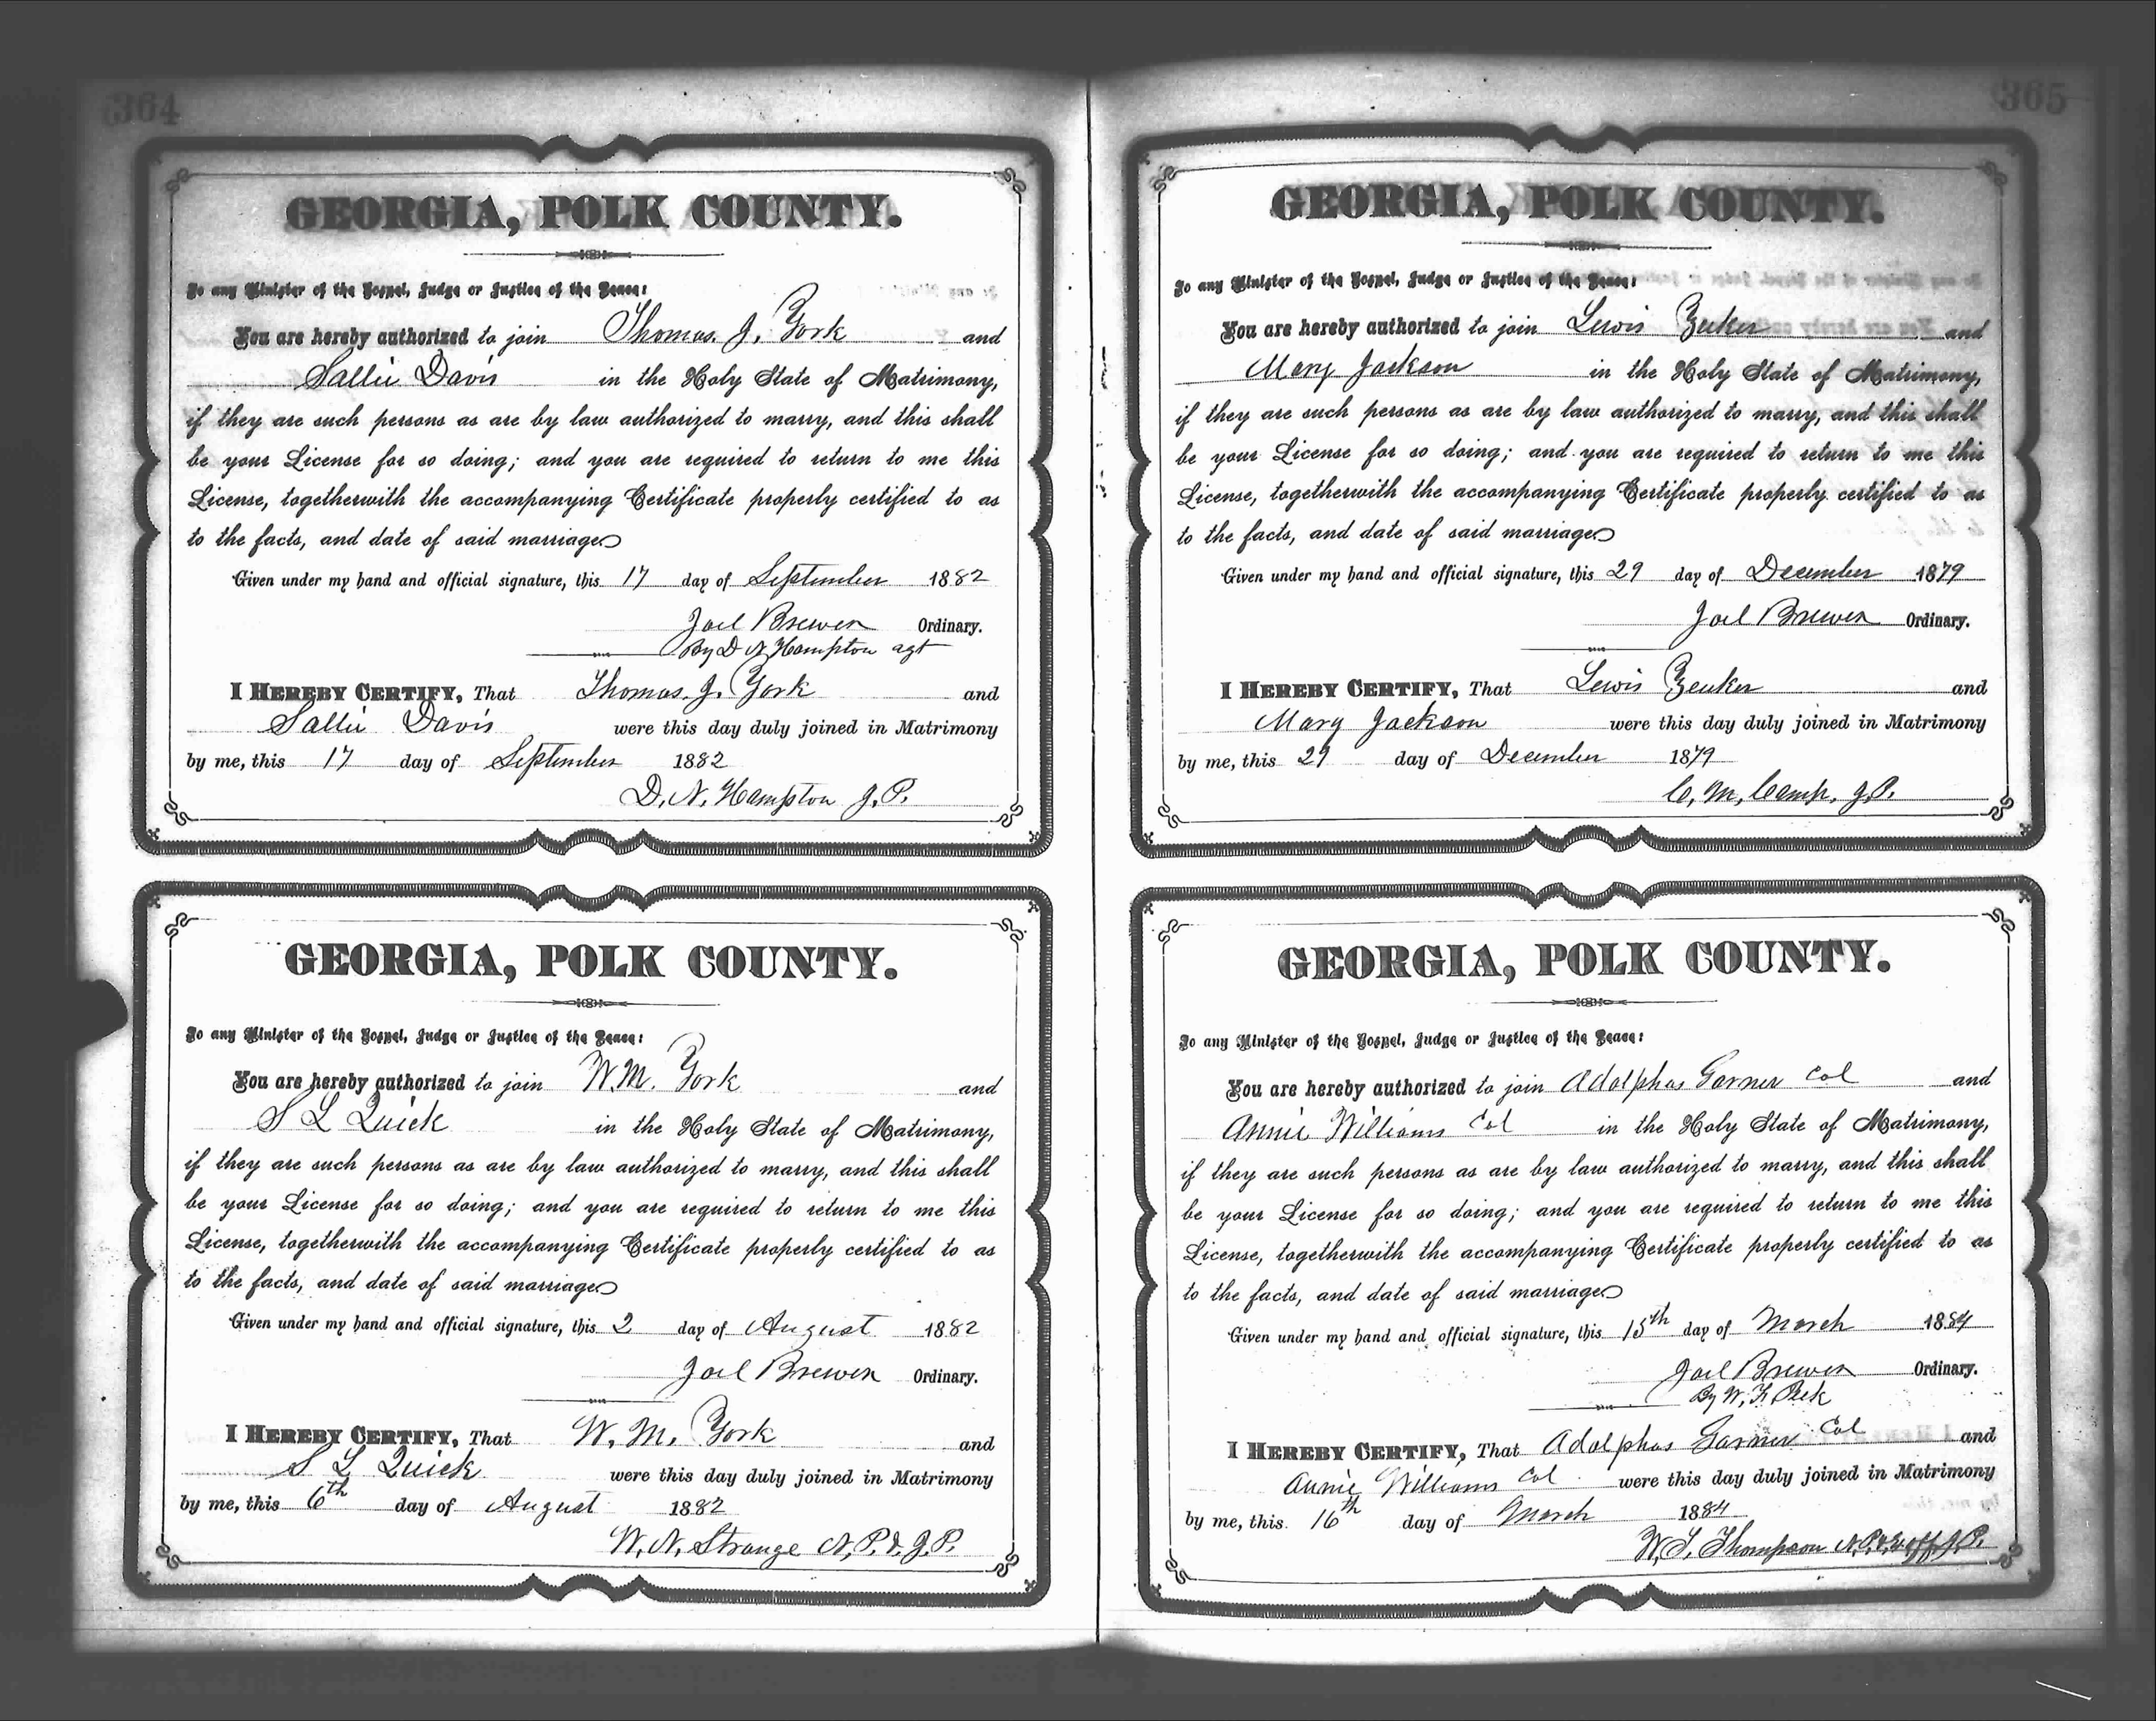 364
GEORGIA, POLK COUNTY.
To any Minister of the Gospel, Judge or Justice of the Peace:
You are hereby authorized to join Thomas. J. York and
Sallie Davis in the Holy State of Matrimony,
if they are such persons as are by law authorized to marry, and this shall
be your License for so doing; and you are required to return to me this
License, togetherwith the accompanying Certificate properly certified to as
to the facts, and date of said marriage
Given under my hand and official signature, this 17 day of September 1882
Joel Brewer Ordinary.
By D N Hampton agt
I HEREBY CERTIFY, That Thomas. J. York and
Sallie Davis were this day duly joined in Matrimony
by me, this 17 day of September 1882
D. N. Hampton J. P.
GEORGIA, POLK COUNTY.
To any Minister of the Gospel, Judge or Justice of the Peace:
You are hereby authorized to join W.M. York and
S L Quick in the Holy State of Matrimony,
if they are such persons as are by law authorized to marry, and this shall
be your License for so doing; and you are required to return to me this
License, togetherwith the accompanying Certificate properly certified to as
to the facts, and date of said marriage
Given under my hand and official signature, this 2 day of August 1882
Joel Brewer Ordinary.
I HEREBY CERTIFY, That W. M. York and
S L Quick were this day duly joined in Matrimony
by me, this 6th day of August 1882
W. N. Strange N. P. & J. P.
365
GEORGIA, POLK COUNTY.
To any Minister of the Gospel, Judge or Justice of the Peace:
You are hereby authorized to join Lewis Zuker and
Mary Jackson in the Holy State of Matrimony,
if they are such persons as are by law authorized to marry, and this shall
be your License for so doing; and you are required to return to me this
License, togetherwith the accompanying Certificate properly certified to as
to the facts, and date of said marriage
Given under my hand and official signature, this 29 day of December 1879
Joel Brewer Ordinary.
I HEREBY CERTIFY, That Lewis Zeuker and
Mary Jackson were this day duly joined in Matrimony
by me, this 29 day of December 1879
C. M. Camp, J.P.
GEORGIA, POLK COUNTY.
To any Minister of the Gospel, Judge or Justice of the Peace:
You are hereby authorized to join Adolphus Garner Col and
Annie Williams Col in the Holy State of Matrimony,
if they are such persons as are by law authorized to marry, and this shall
be your License for so doing; and you are required to return to me this
License, togetherwith the accompanying Certificate properly certified to as
to the facts, and date of said marriage
Given under my hand and official signature, this 15th day of March 1884
Joel Brewer Ordinary.
By W. F. Peek
I HEREBY CERTIFY, That Adolphus Garner Col and
Annie Williams Col were this day duly joined in Matrimony
by me, this 16th day of March 1884
W. T. Thompson N.P. & Ex off J.P.